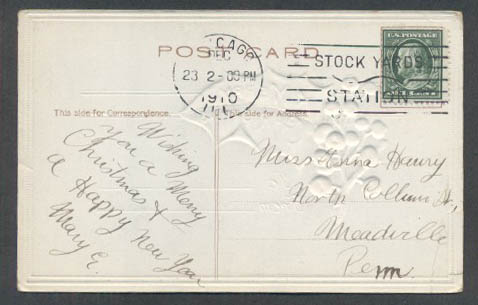 POST CARD
CHICAGO
DEC
23 2-00 PM
1910
ILL
STOCK YARDS
STATION
U.S. POSTAGE
This side for Correspondence.
This side for Address.
Wishing
you a Merry
Christmas &
a Happy New Year
Mary E.
Miss Anna
North St,
Meadville
Penn.